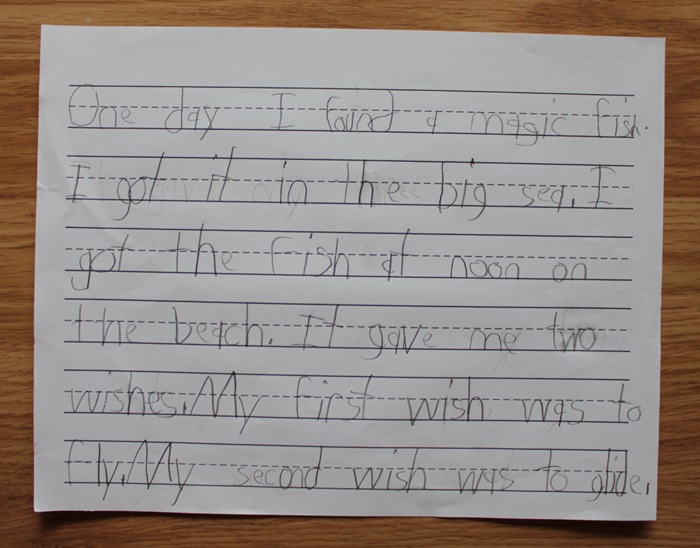 One day I found a magic fish.
I got it in the big sea. I
got the fish at noon on
the beach. It gave me two
wishes. My first wish was to
fly. My second wish was to glide.